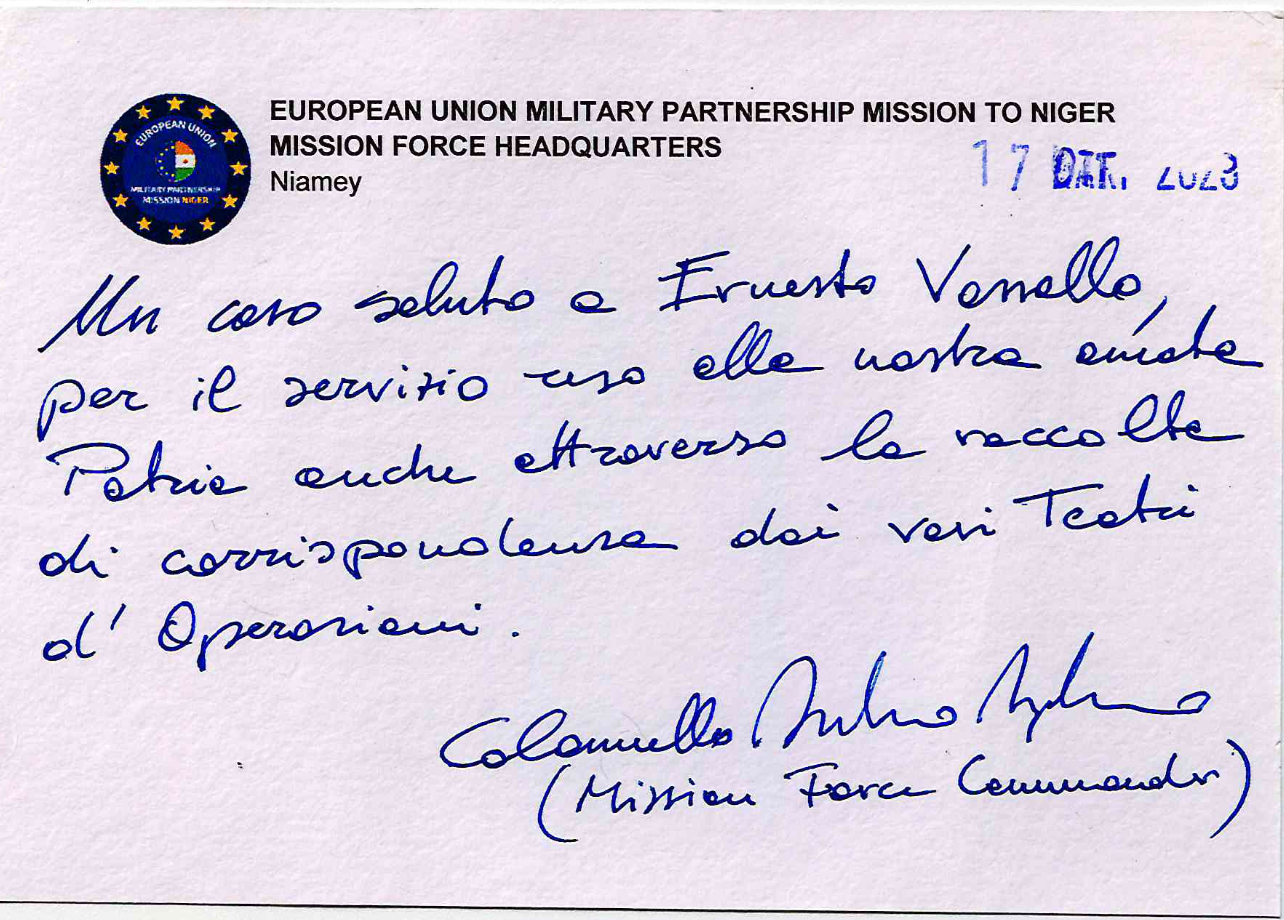 EUROPEAN UNION MILITARY PARTNERSHIP MISSION TO NIGER
MISSION FORCE HEADQUARTERS
Niamey
17 2023
EUROPEAN UNION
MILITARY PARTNERSHIP
MISSION NIGER
Un caro saluto a Ernesto Vassallo,
per il servizio reso alla nostra amata
Patria anche attraverso la raccolta
di corrispondenza dai vari Teatri
d' Operazioni.
Colonnello
(Mission Force Commander)